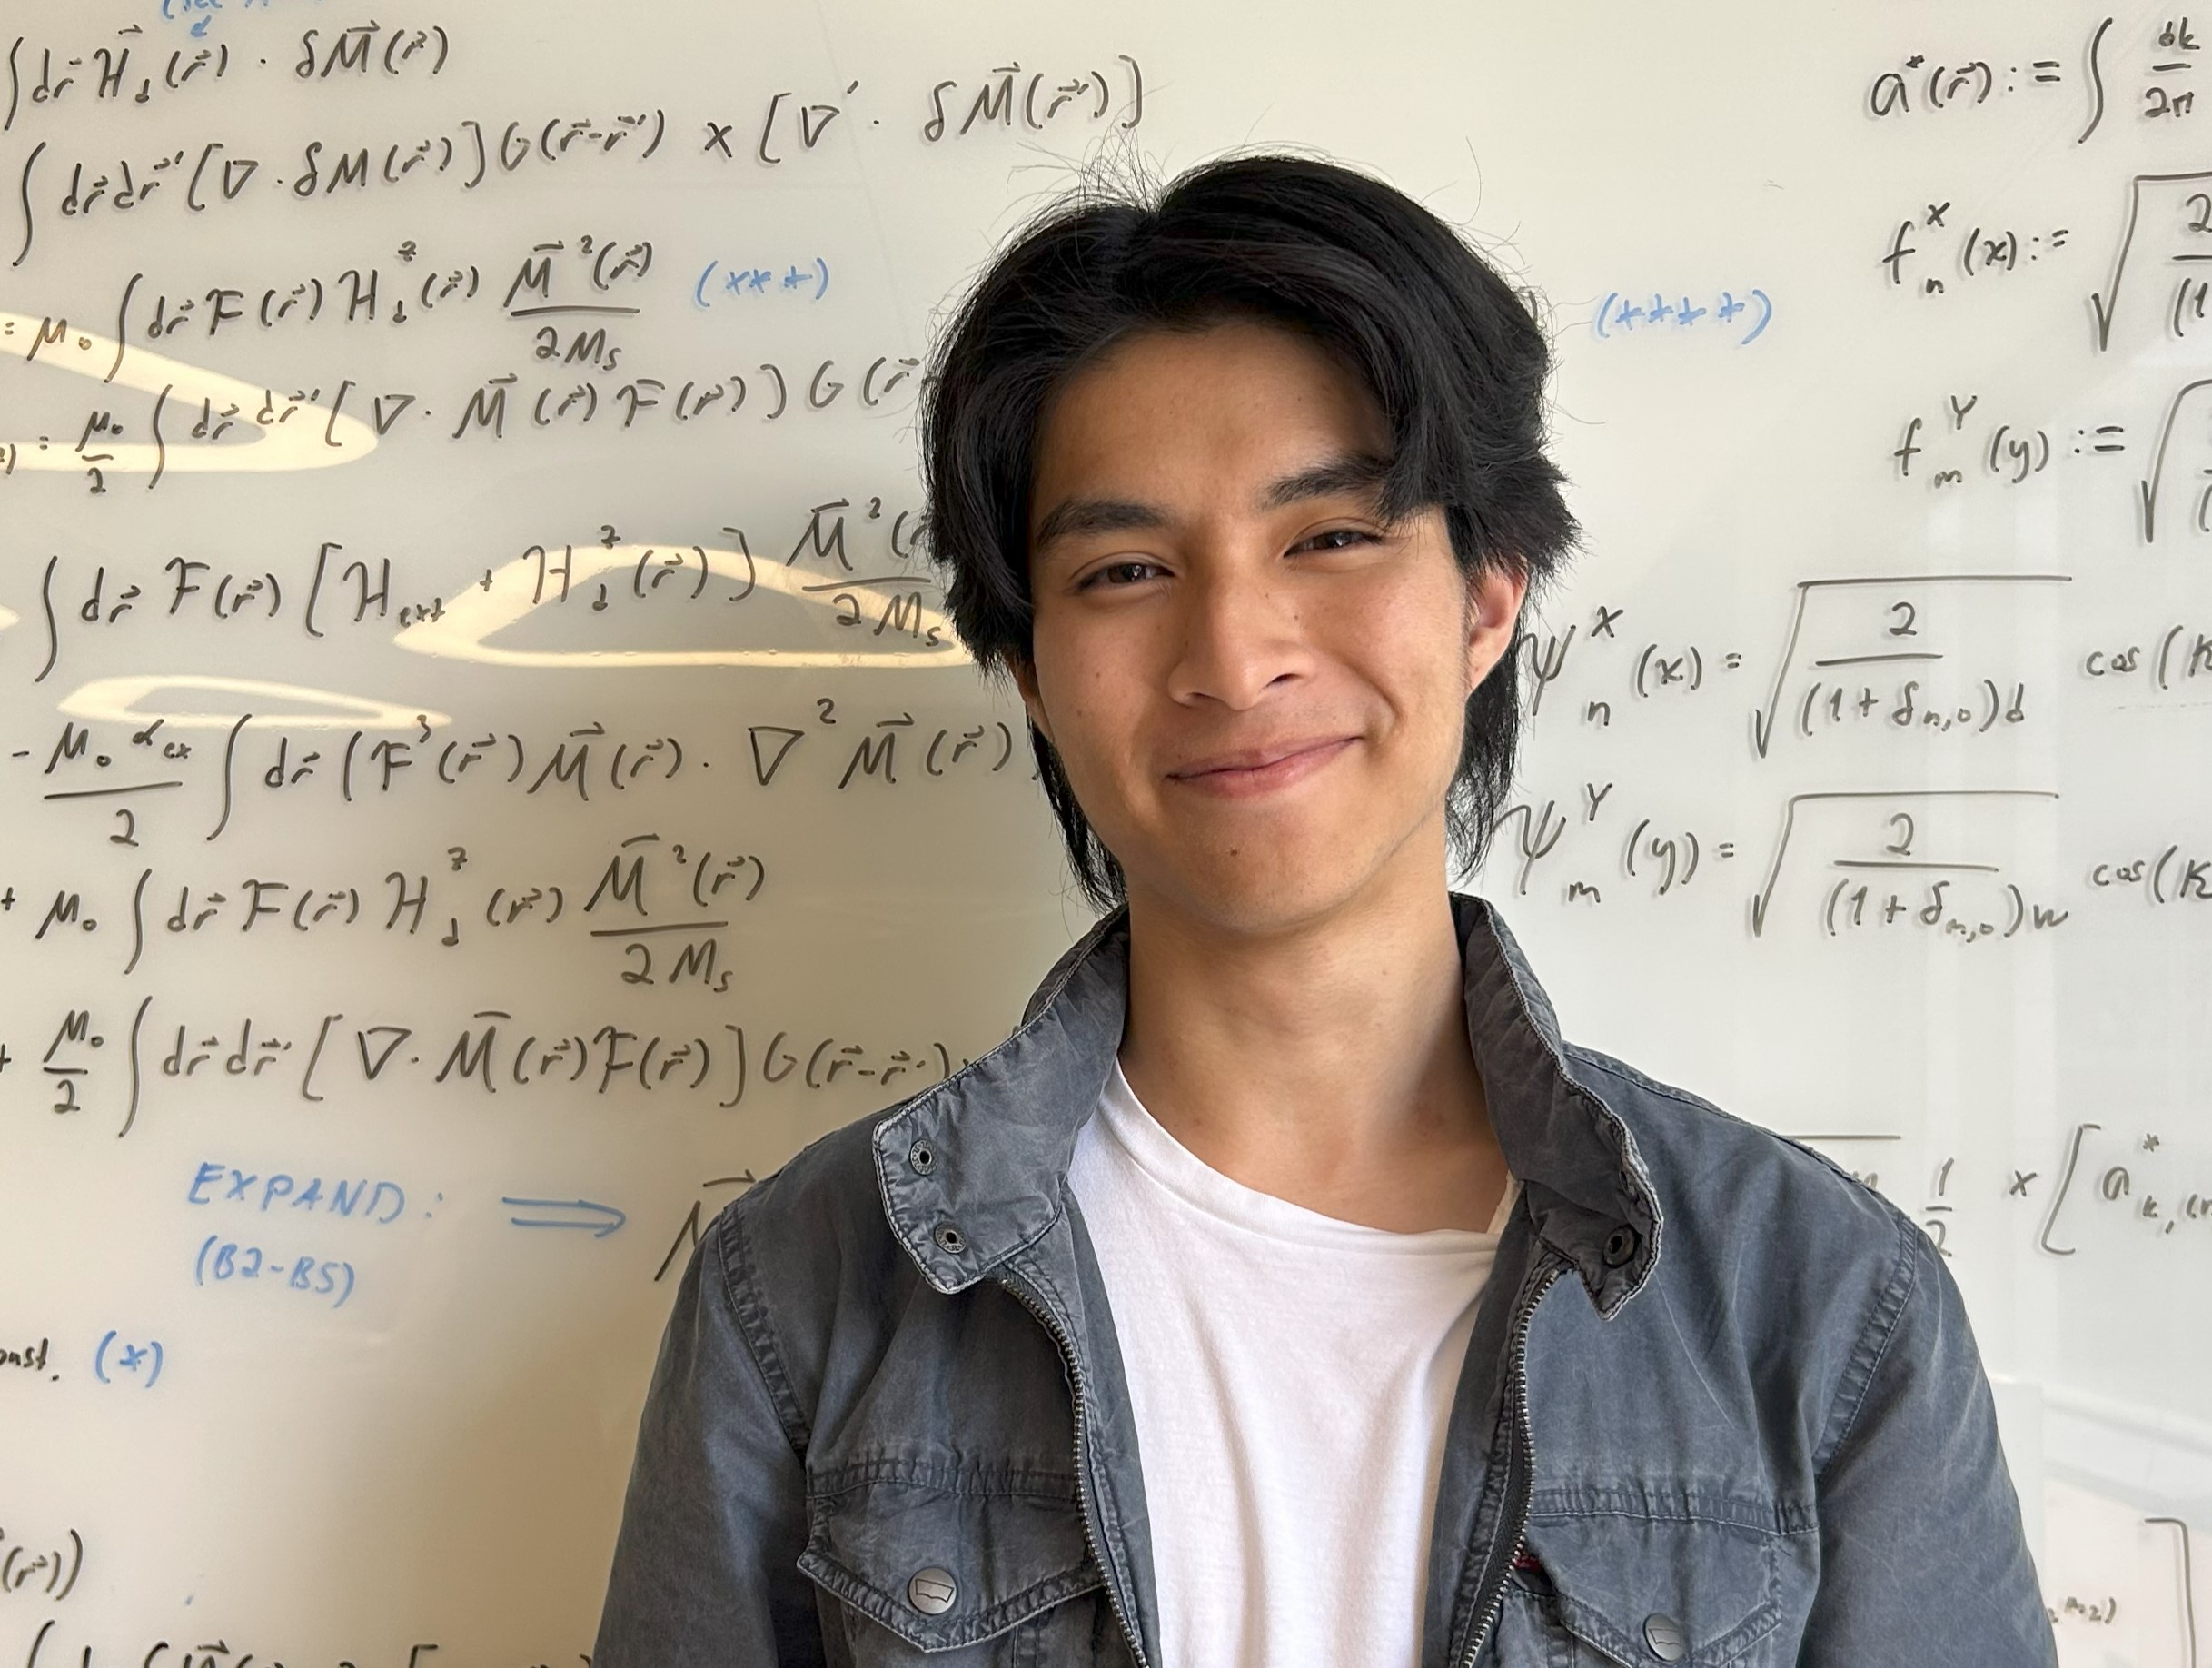 ∫dr⃗ H⃗_d(r⃗) · δM⃗(r⃗)
∫dr⃗dr⃗'[∇·δM(r⃗)]G(r⃗-r⃗') × [∇'· δM⃗(r⃗')]
= μ₀ ∫dr⃗ F(r⃗) H_d^z(r⃗) M⃗²(r⃗)/2M_s (***)
= μ₀/2 ∫dr⃗ dr⃗'[∇· M⃗(r⃗) F(r⃗)] G(r⃗
∫dr⃗ F(r⃗) [H_ext + H_d^z(r⃗)] M⃗²(r/2M_s
- μ₀ α_ex/2 ∫ dr⃗ (F³(r⃗) M⃗(r⃗) · ∇² M⃗(r⃗)
+ μ₀ ∫dr⃗ F(r⃗) H_d^z(r⃗) M⃗²(r⃗)/2M_s
+ μ₀/2 ∫dr⃗dr⃗'[∇· M⃗(r⃗)F(r⃗)]G(r⃗-r⃗')
EXPAND: ⟹ M⃗
(B2-B5)
onst. (*)
(r⃗))
(****)
a*(r⃗) := ∫ dk/2π
f_n^X(x) := √2/(1
f_m^Y(y) := √
ψ_n^X(x) = √(2/((1+δ_{n,0})d)) cos(K
ψ_m^Y(y) = √(2/((1+δ_{m,0})w)) cos(K
1/2 × [a*_{k,